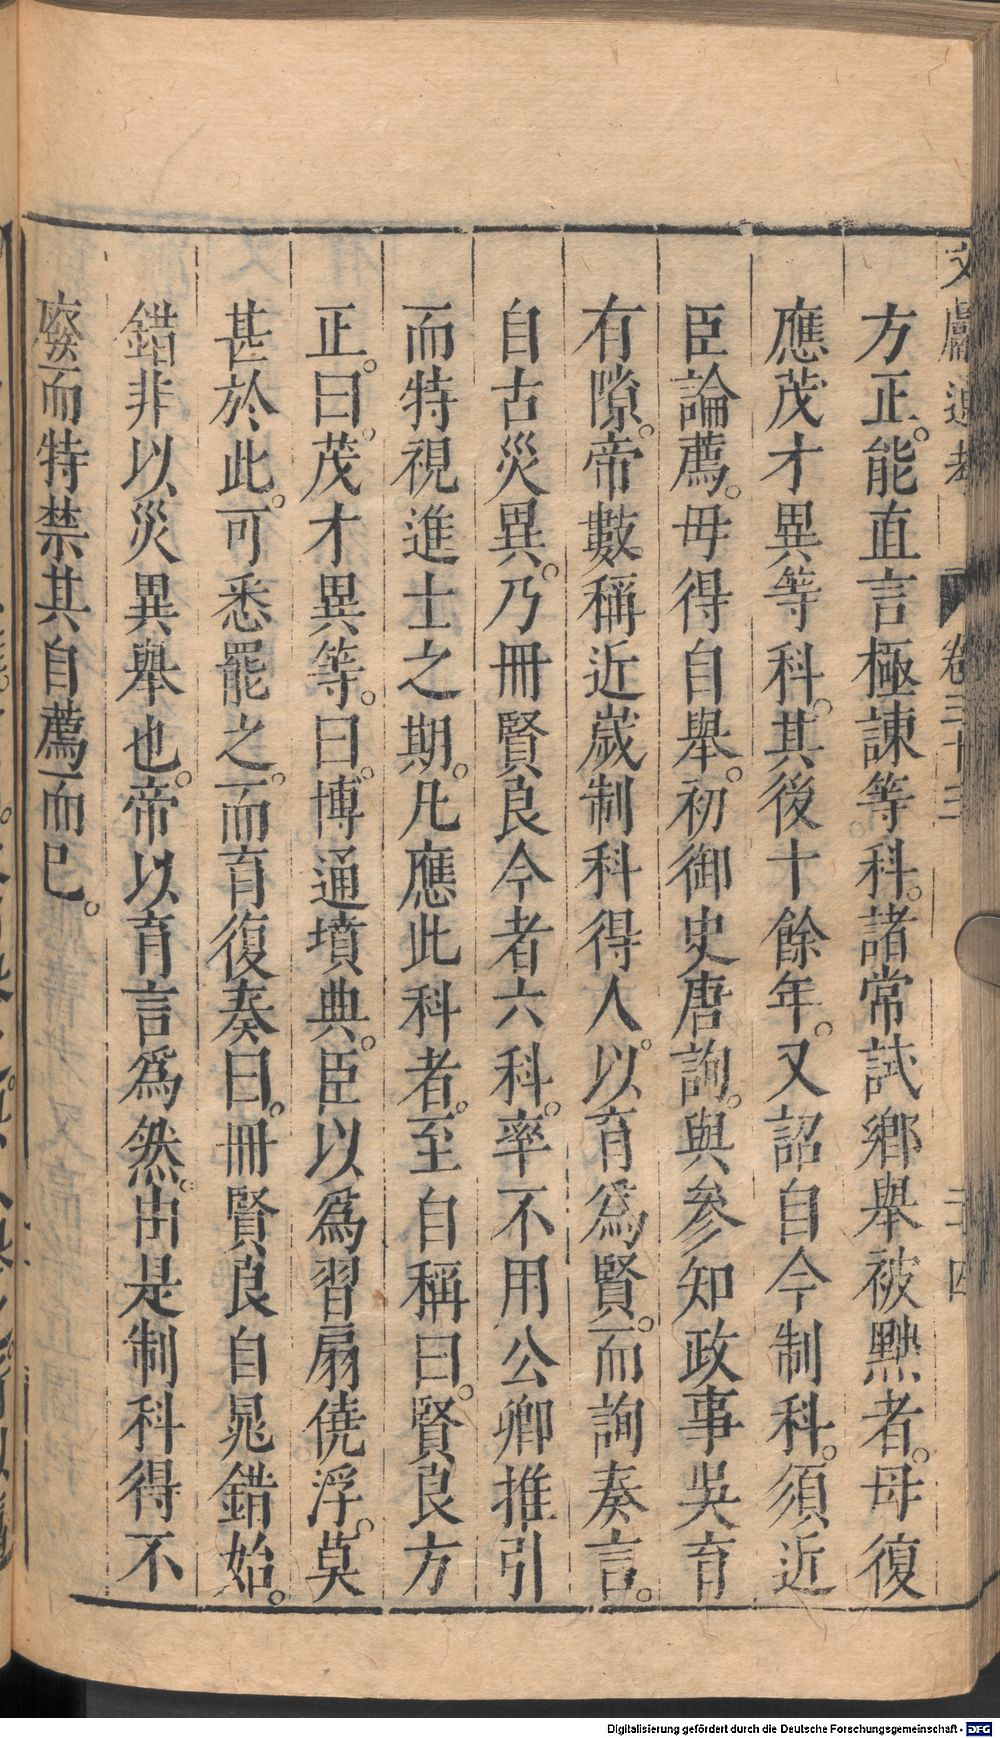 文獻通考 卷三十三 三十四
方正。能直言極諫等科。諸常試鄉舉被黜者。毋復
應茂才異等科。其後十餘年。又詔自今制科。須近
臣論薦。毋得自舉。初御史唐詢。與參知政事吳育
有隙。帝數稱近歲制科得人。以育爲賢。而詢奏言。
自古災異。乃冊賢良今者六科。率不用公卿推引
而特視進士之期。凡應此科者。至自稱曰。賢良方
正。曰。茂才異等。曰。博通墳典。臣以爲習扇僥浮。莫
甚於此。可悉罷之。而育復奏曰。冊賢良自晁錯始。
錯非以災異舉也。帝以育言爲然。由是制科得不
廢而特禁其自薦而已。
Digitalisierung gefördert durch die Deutsche Forschungsgemeinschaft - DFG